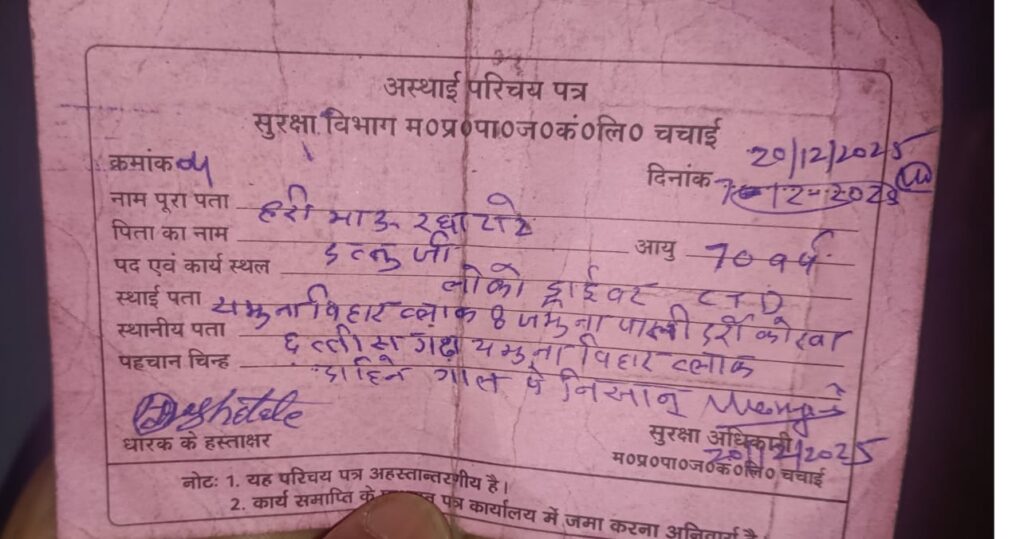 अस्थाई परिचय पत्र
सुरक्षा विभाग म०प्र०पा०ज०कं०लि० चचाई
20/12/2025
क्रमांक 04 दिनांक
नाम पूरा पता हरी भाऊ
पिता का नाम आयु 70 वर्ष
पद एवं कार्य स्थल लोको ड्राईवर
स्थाई पता यमुना विहार ब्लाक 8 जमुना पाली दर्री कोरबा
स्थानीय पता छत्तीसगढ़ यमुना विहार ब्लाक
पहचान चिन्ह दाहिने गाल पे निसान
धारक के हस्ताक्षर सुरक्षा अधिकारी
20/12/2025
म०प्र०पा०ज०कं०लि० चचाई
नोटः 1. यह परिचय पत्र अहस्तान्तरणीय है।
2. कार्य समाप्ति के पत्र कार्यालय में जमा करना अनिवार्य है